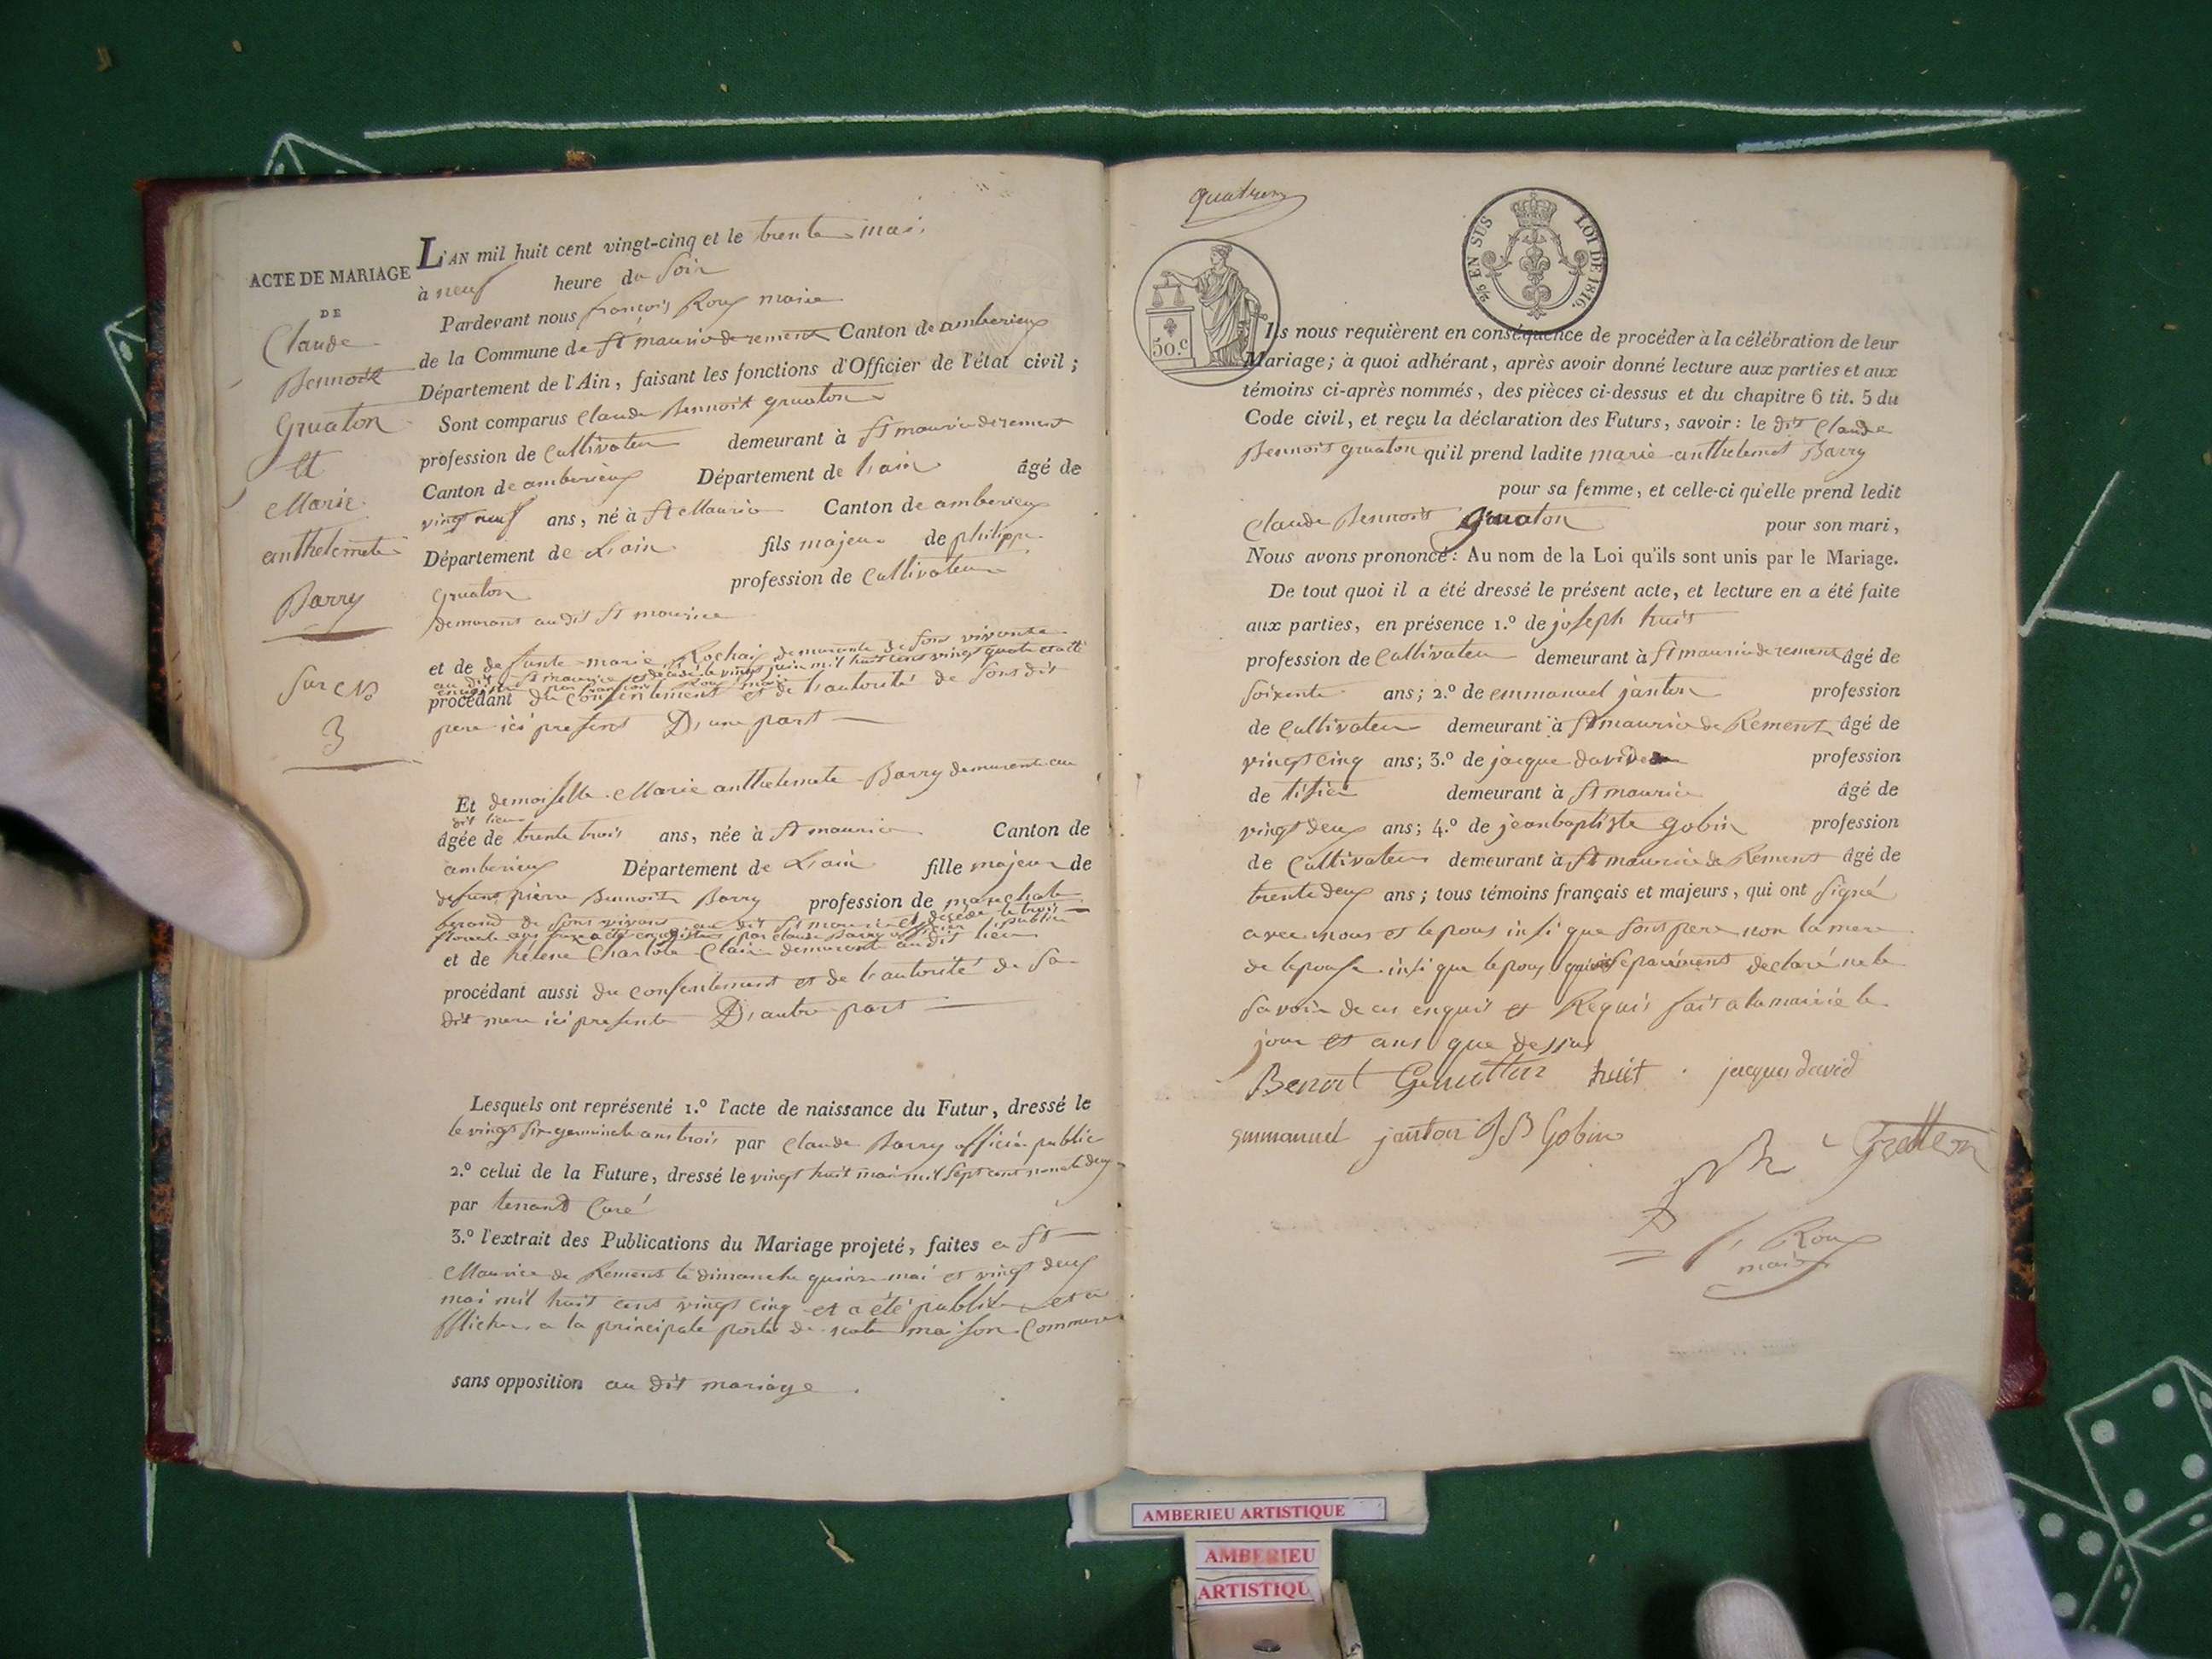 ACTE DE MARIAGE
DE
Claude
Bennoit
Gruaton
et
Marie
anthelemete
Barry
Sur C No
3
L'AN mil huit cent vingt-cinq et le trente mai
à neuf heure du soir
Pardevant nous françois Roux maire
de la Commune de St maurice de remens Canton de amberieux
Département de l'Ain, faisant les fonctions d'Officier de l'état civil ;
Sont comparus Claude Bennoit gruaton
profession de Cultivateur demeurant à St maurice de remens
Canton de amberieux Département de l'ain âgé de
vingt neuf ans, né à St Maurice Canton de amberieux
Département de L'ain fils majeur de philippe
Gruaton profession de Cultivateur
demurant au dit St maurice
et de defunte marie Rochaix demurante de son vivante
au dit St maurice et décédé le vingt juin mil huit cens vingt quatre
enregistré par françois Roux maire
procédant du Consentement et de l'autorité de sons dit
pere ici present D'une part
Et demoiselle Marie anthelemete Barry demurente au
dit lieu
âgée de trente trois ans, née à St maurice Canton de
amberieux Département de L'ain fille majeur de
defunt pierre Bennoit Barry profession de marechale
ferand de sons vivans au dit St maurice et décédé le trois
floreale ans enregistré par claude Barry officier public
et de helene Charlote Clair demurant au dit lieu
procédant aussi du Consentement et de l'autorité de sa
dit mere ici presente D'autre part
Lesquels ont représenté 1.º l'acte de naissance du Futur, dressé le
le vingt six germinale ans trois par Claude Barry officier public
2.º celui de la Future, dressé le vingt huit mai mil sept cent nonente deux
par tenand Curé
3.º l'extrait des Publications du Mariage projeté, faites a St
Maurice de Remens le dimanche quinze mai et vingt deux
mai mil huit cens vingt cinq et a été publié et a
ffiché a la principale porte de notre maison Commune
sans opposition au dit mariage.
quatorze
2/5 EN SUS LOI DE 1816.
50.c
Ils nous requièrent en conséquence de procéder à la célébration de leur
Mariage; à quoi adhérant, après avoir donné lecture aux parties et aux
témoins ci-après nommés, des pièces ci-dessus et du chapitre 6 tit. 5 du
Code civil, et reçu la déclaration des Futurs, savoir : le dit Claude
Bennoit gruaton qu'il prend ladite marie anthelemet Barry
pour sa femme, et celle-ci qu'elle prend ledit
Claude Bennoit gruaton pour son mari,
Nous avons prononcé : Au nom de la Loi qu'ils sont unis par le Mariage.
De tout quoi il a été dressé le présent acte, et lecture en a été faite
aux parties, en présence 1.º de joseph huit
profession de Cultivateur demeurant à St maurice de remens âgé de
soixente ans; 2.º de emmanuel janton profession
de Cultivateur demeurant à St maurice de Remens âgé de
vingt cinq ans; 3.º de jacque david profession
de tisier demeurant à St maurice âgé de
vingt deux ans; 4.º de jeanbaptiste gobin profession
de Cultivateur demeurant à St maurice de Remens âgé de
trente deux ans; tous témoins français et majeurs, qui ont signé
avec nous et lepous insi que sons pere non la mere
de lepouse insi que lepous qui separément declaré ne le
savoir de ces enquis et Requis fait a la mairie le
jour et ans que dessus
Benoit Gruatton huit jacques david
emmanuel janton J B Gobin
f, Roux
maire
AMBERIEU ARTISTIQUE
AMBERIEU
ARTISTIQU